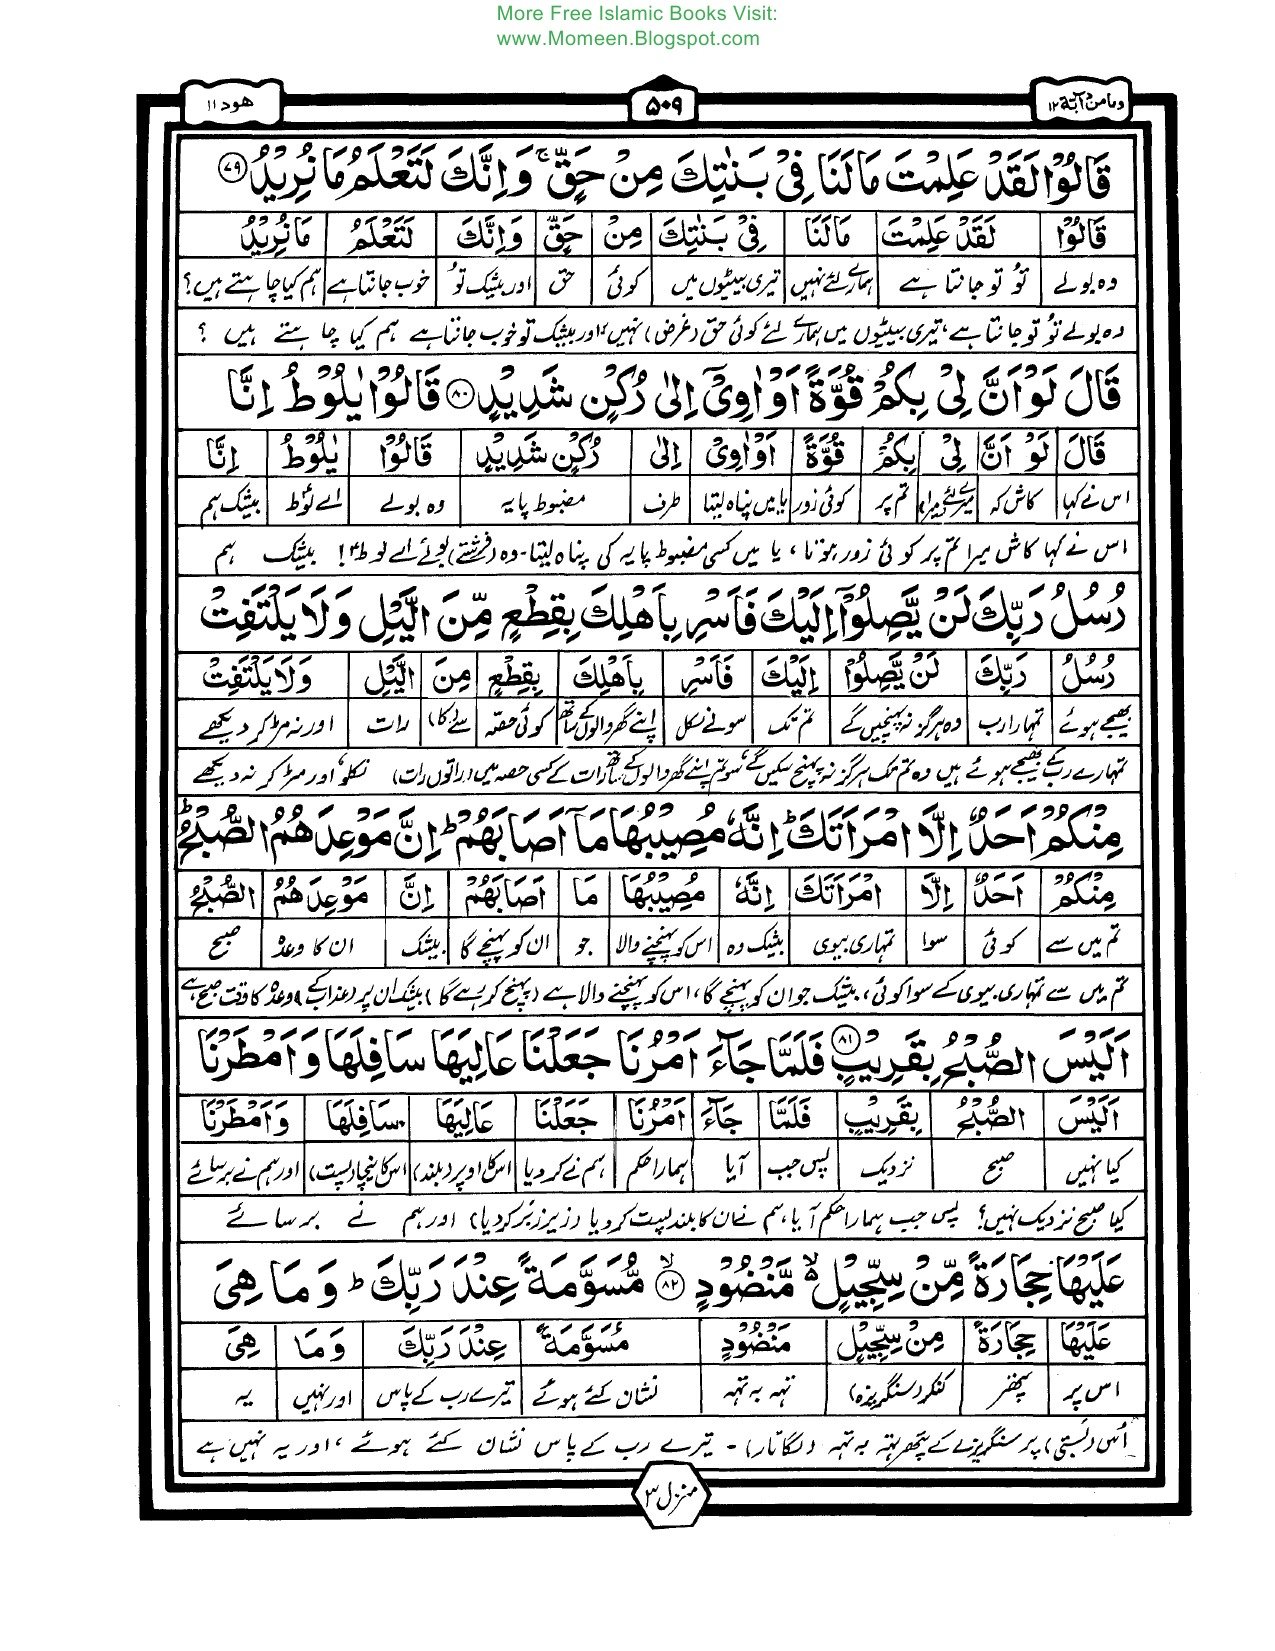 More Free Islamic Books Visit:
www.Momeen.Blogspot.com
ومامن دآبة ۱۲
۵۰۹
هود ۱۱
قَالُوْا لَقَدْ عَلِمْتَ مَا لَنَا فِیْ بَنٰتِكَ مِنْ حَقٍّ ۚ وَاِنَّكَ لَتَعْلَمُ مَا نُرِیْدُ ۷۹
قَالُوْا لَقَدْ عَلِمْتَ مَا لَنَا فِیْ بَنٰتِكَ مِنْ حَقٍّ وَاِنَّكَ لَتَعْلَمُ مَا نُرِیْدُ
وہ بولے تُو تو جانتا ہے ہمارے لئے نہیں تیری بیٹیوں میں کوئی حق اور بیشک تُو خوب جانتا ہے ہم کیا چاہتے ہیں؟
وہ بولے تُو تو جانتا ہے، تیری بیٹیوں میں ہمارے لئے کوئی حق (غرض) نہیں، اور بیشک تو خوب جانتا ہے ہم کیا چاہتے ہیں ؟
قَالَ لَوْ اَنَّ لِیْ بِكُمْ قُوَّةً اَوْ اٰوِیْۤ اِلٰی رُكْنٍ شَدِیْدٍ ۸۰ قَالُوْا یٰلُوْطُ اِنَّا
قَالَ لَوْ اَنَّ لِیْ بِكُمْ قُوَّةً اَوْ اٰوِیْ اِلٰی رُكْنٍ شَدِیْدٍ قَالُوْا یٰلُوْطُ اِنَّا
اس نے کہا کاش کہ میرے لئے (میرا) تم پر کوئی زور یا میں پناہ لیتا طرف مضبوط پایہ وہ بولے اے لوط بیشک ہم
اس نے کہا کاش میرا تم پر کوئی زور ہوتا، یا میں کسی مضبوط پایہ کی پناہ لیتا۔ وہ (فرشتے) بولے اے لوط! بیشک ہم
رُسُلُ رَبِّكَ لَنْ یَّصِلُوْۤا اِلَیْكَ فَاَسْرِ بِاَهْلِكَ بِقِطْعٍ مِّنَ الَّیْلِ وَلَا یَلْتَفِتْ
رُسُلُ رَبِّكَ لَنْ یَّصِلُوْا اِلَیْكَ فَاَسْرِ بِاَهْلِكَ بِقِطْعٍ مِنَ الَّیْلِ وَلَا یَلْتَفِتْ
بھیجے ہوئے تمہارا رب وہ ہرگز نہ پہنچیں گے تم تک سو نے نکل اپنے گھر والوں کے ساتھ کوئی حصہ سے (کا) رات اور نہ مڑ کر دیکھے
تمہارے رب کے بھیجے ہوئے ہیں وہ تم تک ہرگز نہ پہنچ سکیں گے سو تم اپنے گھر والوں کے ساتھ رات کے کسی حصہ میں (راتوں رات) نکلو اور مڑ کر نہ دیکھے
مِنْكُمْ اَحَدٌ اِلَّا امْرَاَتَكَ ؕ اِنَّهٗ مُصِیْبُهَا مَاۤ اَصَابَهُمْ ؕ اِنَّ مَوْعِدَهُمُ الصُّبْحُ ؕ
مِنْكُمْ اَحَدٌ اِلَّا امْرَاَتَكَ اِنَّهٗ مُصِیْبُهَا مَا اَصَابَهُمْ اِنَّ مَوْعِدَهُمْ الصُّبْحُ
تم میں سے کوئی سوا تمہاری بیوی بیشک وہ اس کو پہنچنے والا جو ان کو پہنچے گا بیشک ان کا وعدہ صبح
تم میں سے تمہاری بیوی کے سوا کوئی، بیشک جو ان کو پہنچے گا، اس کو پہنچنے والا ہے (پہنچ کر رہے گا) بیشک ان پر (عذاب کے) وعدہ کا وقت صبح ہے
اَلَیْسَ الصُّبْحُ بِقَرِیْبٍ ۸۱ فَلَمَّا جَآءَ اَمْرُنَا جَعَلْنَا عَالِیَهَا سَافِلَهَا وَاَمْطَرْنَا
اَلَیْسَ الصُّبْحُ بِقَرِیْبٍ فَلَمَّا جَآءَ اَمْرُنَا جَعَلْنَا عَالِیَهَا سَافِلَهَا وَاَمْطَرْنَا
کیا نہیں صبح نزدیک پس جب آیا ہمارا حکم ہم نے کر دیا اس کا اوپر (بلند) اس کا نیچا (پست) اور ہم نے برسائے
کیا صبح نزدیک نہیں؟ پس جب ہمارا حکم آیا، ہم نے ان کا بلند پست کر دیا (زیر زبر کر دیا) اور ہم نے برسائے
عَلَیْهَا حِجَارَةً مِّنْ سِجِّیْلٍ ۙ مَّنْضُوْدٍ ۸۲ ۙ مُّسَوَّمَةً عِنْدَ رَبِّكَ ؕ وَمَا هِیَ
عَلَیْهَا حِجَارَةً مِنْ سِجِّیْلٍ مَنْضُوْدٍ مُسَوَّمَةً عِنْدَ رَبِّكَ وَمَا هِیَ
اس پر پتھر کنکر (سنگریزہ) تہہ بہ تہہ نشان کئے ہوئے تیرے رب کے پاس اور نہیں یہ
اُس (بستی) پر سنگریزے کے پتھر تہہ بہ تہہ (لگاتار)۔ تیرے رب کے پاس نشان کئے ہوئے، اور یہ نہیں ہے
منزل ۳